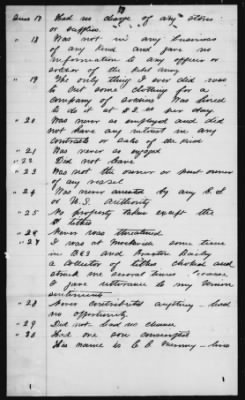 Ans 17 Had no charge of any stores
or supplies
" 18 Was not in any business
of any kind and gave no
information to any officer or
soldier of the rebel army
" 19 The only thing I ever did was
to cut some clothing for a
company of soldiers Was hired
to do it at $2.00 per day
" 20 Was never so employed and did
not have any interest in any
contracts or sales of the kind
" 21 Was never so engaged
" 22 Did not have
" 23 Was not the owner or part owner
of any vessel
" 24 Was never arrested by any C.S
or U.S. Authority
" 25 No property taken except the
tithes
" 26 Never was threatened
" 27 I was at some time
in 1863 and Bailey
a collector of tithes choked and
struck me several times because
I gave utterance to my Union
sentiments
" 28 Never contributed anything - had
no opportunity
" 29 Did not had no chance
" 30 Had one son conscripted
His name is C. C. - lives